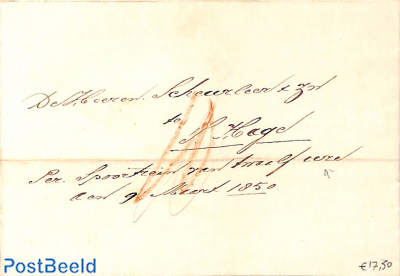 De Heeren Scheurleer & Zn
te
's Hage
Per Spoortrein van twaalf ure
den 9 Maart 1850
€17,50
PostBeeld